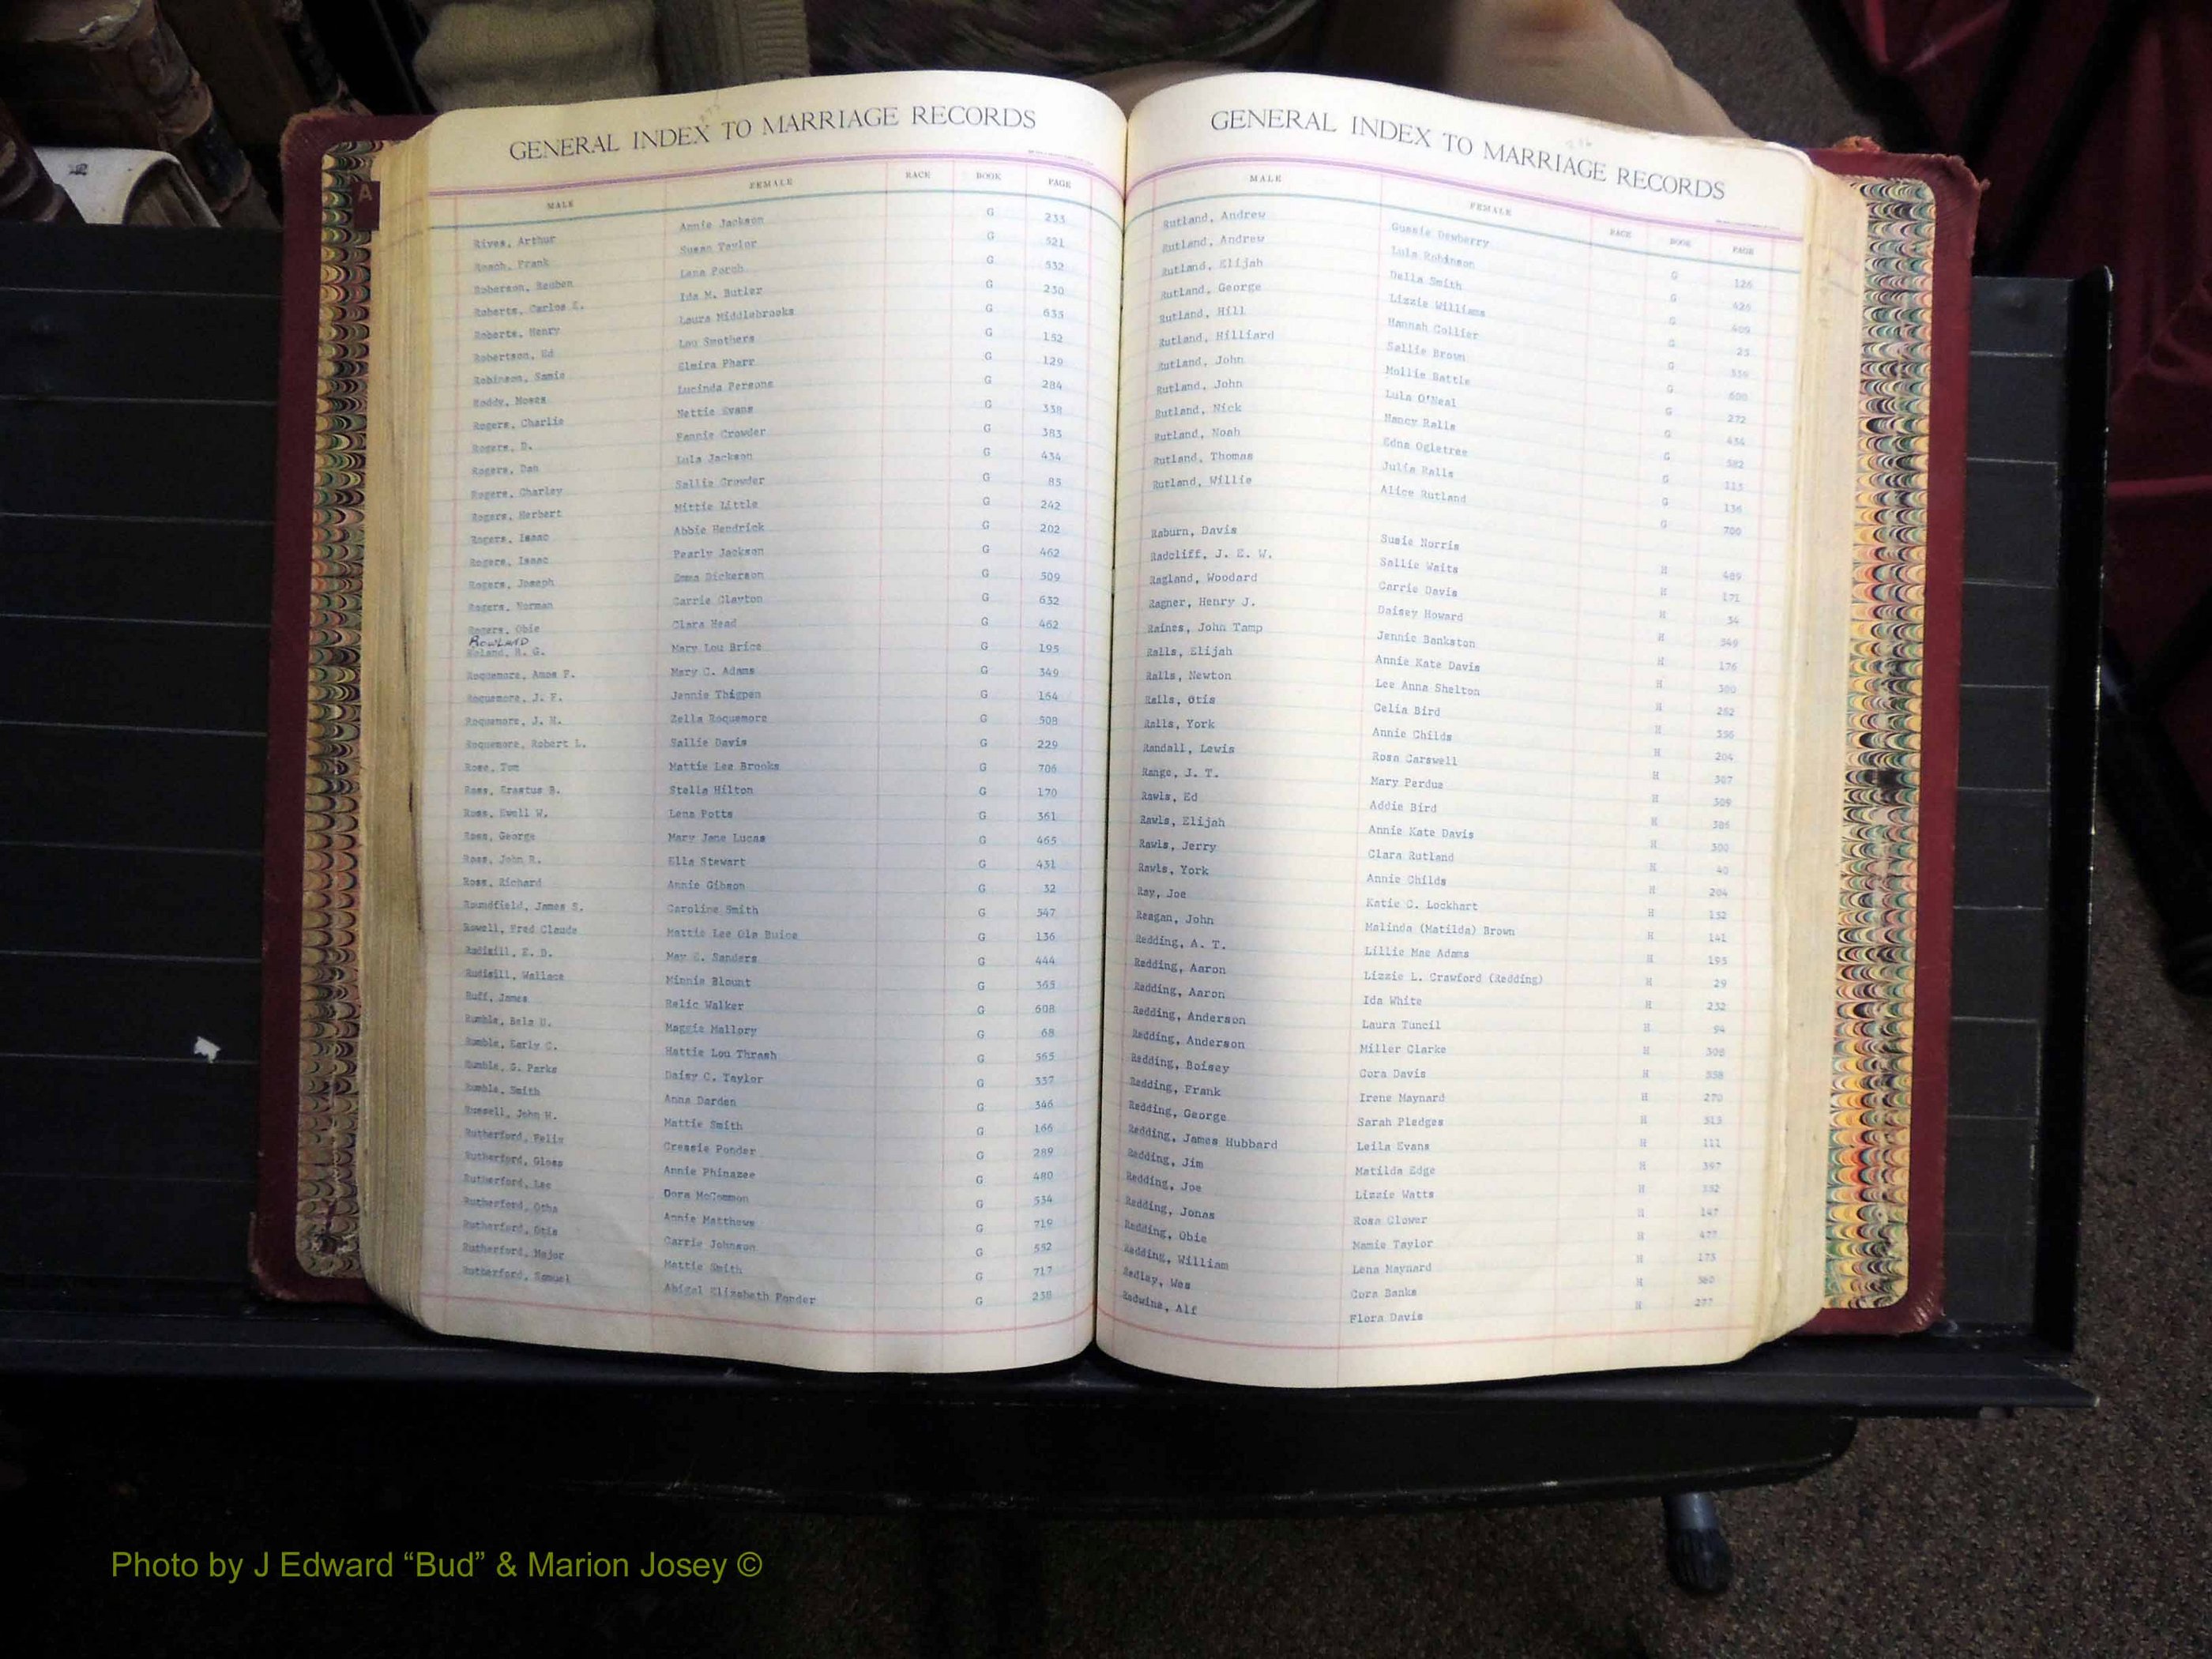 GENERAL INDEX TO MARRIAGE RECORDS
MALE FEMALE RACE BOOK PAGE
Rives, Arthur Annie Jackson G 233
Roach, Frank Susan Taylor G 521
Roberson, Reuben Lena Porch G 532
Roberts, Carlos E. Ida M. Butler G 230
Roberts, Henry Laura Middlebrooks G 635
Robertson, Ed Lou Smothers G 152
Robinson, Samie Elmira Pharr G 129
Roddy, Moses Lucinda Persons G 284
Rogers, Charlie Nettie Evans G 338
Rogers, D. Fannie Crowder G 383
Rogers, Dan Lula Jackson G 434
Rogers, Charley Sallie Crowder G 85
Rogers, Herbert Mittie Little G 242
Rogers, Isaac Abbie Hendrick G 202
Rogers, Isaac Pearly Jackson G 462
Rogers, Joseph Emma Dickerson G 509
Rogers, Norman Carrie Clayton G 632
Rogers, Obie Clara Head G 462
ROWLAND
Roland, B. G. Mary Lou Brice G 195
Roquemore, Amos F. Mary C. Adams G 349
Roquemore, J. F. Jennie Thigpen G 164
Roquemore, J. H. Zella Roquemore G 508
Roquemore, Robert L. Sallie Davis G 229
Rose, Tom Mattie Lee Brooks G 706
Ross, Erastus B. Stella Hilton G 170
Ross, Ewell W. Lena Potts G 361
Ross, George Mary Jane Lucas G 465
Ross, John R. Ella Stewart G 431
Ross, Richard Annie Gibson G 32
Roundfield, James S. Caroline Smith G 547
Rowell, Fred Claude Mattie Lee Ola Buice G 136
Rudisill, E. D. May E. Sanders G 444
Rudisill, Wallace Minnie Blount G 365
Ruff, James Relic Walker G 608
Rumble, Bela U. Maggie Mallory G 68
Rumble, Early C. Hattie Lou Thrash G 565
Rumble, G. Parks Daisy C. Taylor G 337
Rumble, Smith Anna Darden G 346
Russell, John H. Mattie Smith G 166
Rutherford, Felix Creasie Ponder G 289
Rutherford, Gloss Annie Phinazee G 480
Rutherford, Lee Dora McCommon G 534
Rutherford, Otha Annie Matthews G 719
Rutherford, Otis Carrie Johnson G 592
Rutherford, Major Mattie Smith G 717
Rutherford, Samuel Abigal Elizabeth Ponder G 238
GENERAL INDEX TO MARRIAGE RECORDS
MALE FEMALE RACE BOOK PAGE
Rutland, Andrew Gussie Dewberry G 126
Rutland, Andrew Lula Robinson G 426
Rutland, Elijah Della Smith G
Rutland, George Lizzie Williams G 25
Rutland, Hill Hannah Collier G
Rutland, Hilliard Sallie Brown G 600
Rutland, John Mollie Battle G 272
Rutland, John Lula O'Neal G 434
Rutland, Nick Nancy Ralls G 582
Rutland, Noah Edna Ogletree G 113
Rutland, Thomas Julia Ralls G 136
Rutland, Willie Alice Rutland G 700
Raburn, Davis Susie Norris H 489
Radcliff, J. E. W. Sallie Waits H 171
Ragland, Woodard Carrie Davis H 34
Ragner, Henry J. Daisey Howard H 549
Raines, John Tamp Jennie Bankston H 176
Ralls, Elijah Annie Kate Davis H 300
Ralls, Newton Lee Anna Shelton H 262
Ralls, Otis Celia Bird H 556
Ralls, York Annie Childs H 204
Randall, Lewis Rosa Carswell H 307
Range, J. T. Mary Perdue H 509
Rawls, Ed Addie Bird H 386
Rawls, Elijah Annie Kate Davis H 300
Rawls, Jerry Clara Rutland H 40
Rawls, York Annie Childs H 204
Ray, Joe Katie C. Lockhart H 132
Reagan, John Malinda (Matilda) Brown H 141
Redding, A. T. Lillie Mae Adams H 195
Redding, Aaron Lizzie L. Crawford (Redding) H 29
Redding, Aaron Ida White H 232
Redding, Anderson Laura Tuncil H 94
Redding, Anderson Miller Clarke H 308
Redding, Boisey Cora Davis H 558
Redding, Frank Irene Maynard H 270
Redding, George Sarah Pledges H 513
Redding, James Hubbard Leila Evans H 111
Redding, Jim Matilda Edge H 397
Redding, Joe Lizzie Watts H 552
Redding, Jonas Rosa Clower H 147
Redding, Obie Mamie Taylor H 477
Redding, William Lena Maynard H 173
Redlay, Wes Cora Banks H 560
Redwine, Alf Flora Davis H 277
A
Photo by J Edward “Bud” & Marion Josey ©